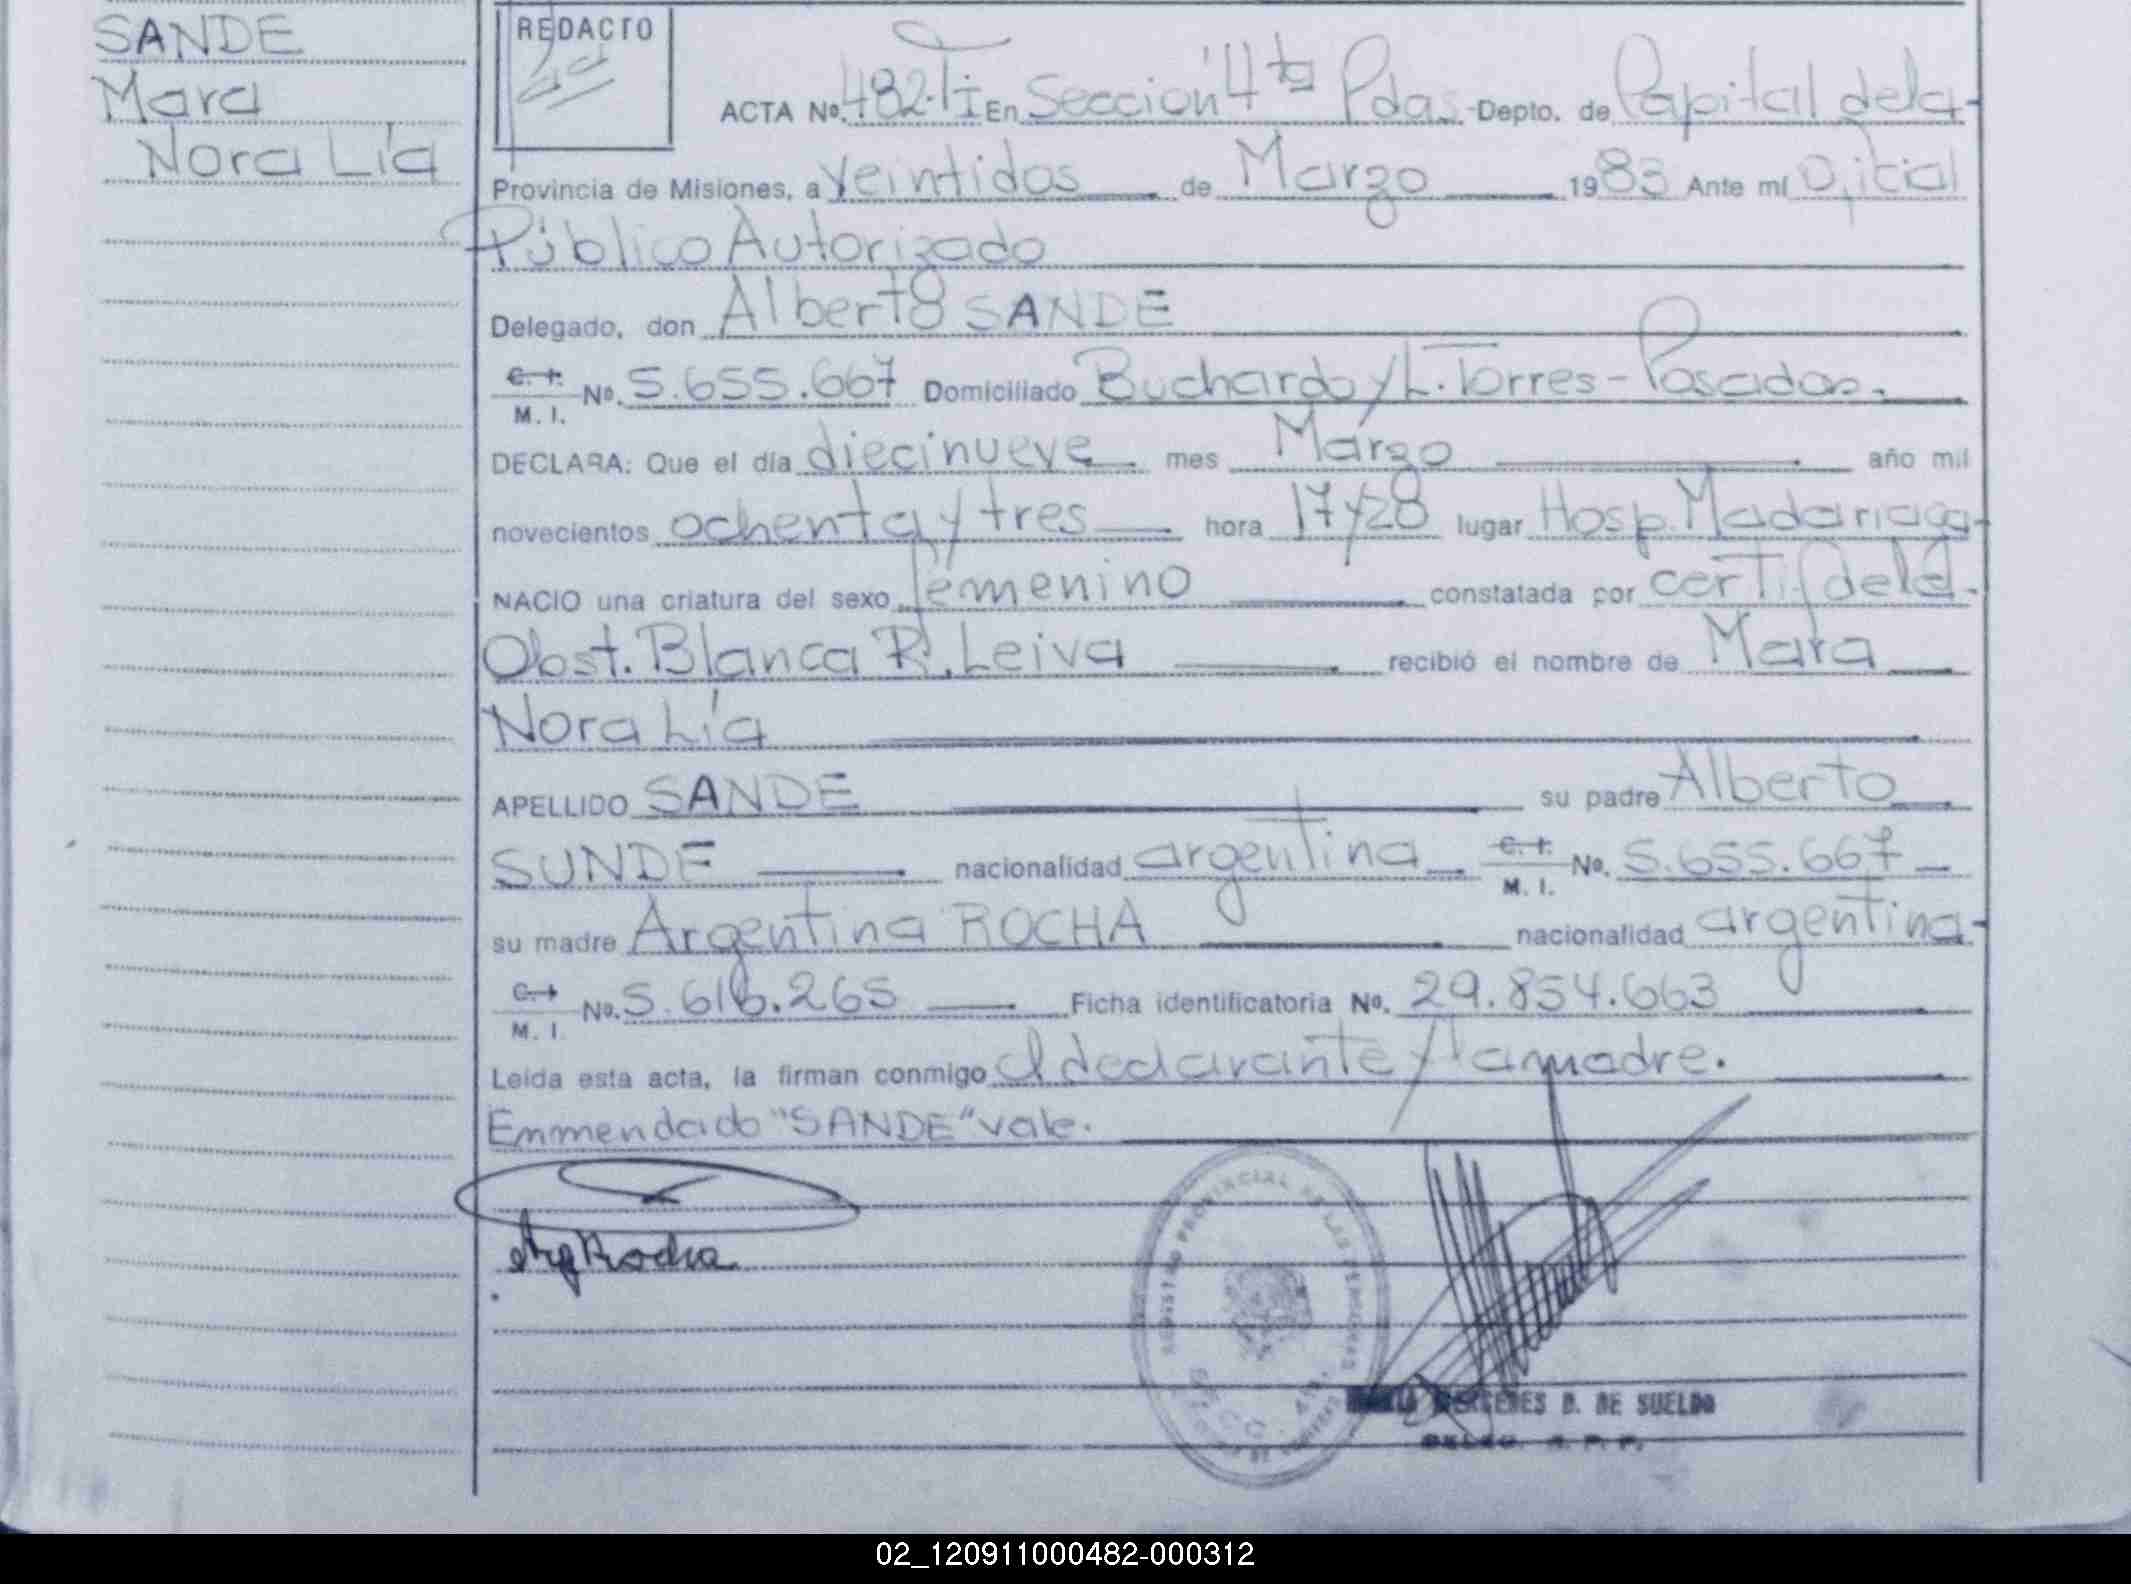 SANDE
Mara
Nora Lía
REDACTO
ACTA Nº. 482·TI En Sección 4ta Pdas.-Depto. de Capital de la-
Provincia de Misiones, a veintidos de Marzo 1983 Ante mí Oficial
Público Autorizado
Delegado, don Alberto SANDE
C. I. M. I. Nº. 5.655.667 Domiciliado Buchardo y L. Torres-Posadas.
DECLARA: Que el día diecinueve mes Marzo año mil
novecientos ochenta y tres hora 17 y 28 lugar Hosp. Madariaga-
NACIO una criatura del sexo femenino constatada por certif. de la
Obst. Blanca R. Leiva recibió el nombre de Mara
Nora Lía
APELLIDO SANDE su padre Alberto
SUNDE nacionalidad argentina C. I. M. I. Nº. 5.655.667
su madre Argentina ROCHA nacionalidad argentina-
C. I. M. I. Nº. 5.616.265 Ficha identificatoria Nº. 29.854.663
Leída esta acta, la firman conmigo el declarante y la madre.
Emmendado "SANDE" vale.
Arg Rocha
REGISTRO PROVINCIAL DE LAS PERSONAS
MERCEDES B. DE SUELDO
02_120911000482-000312